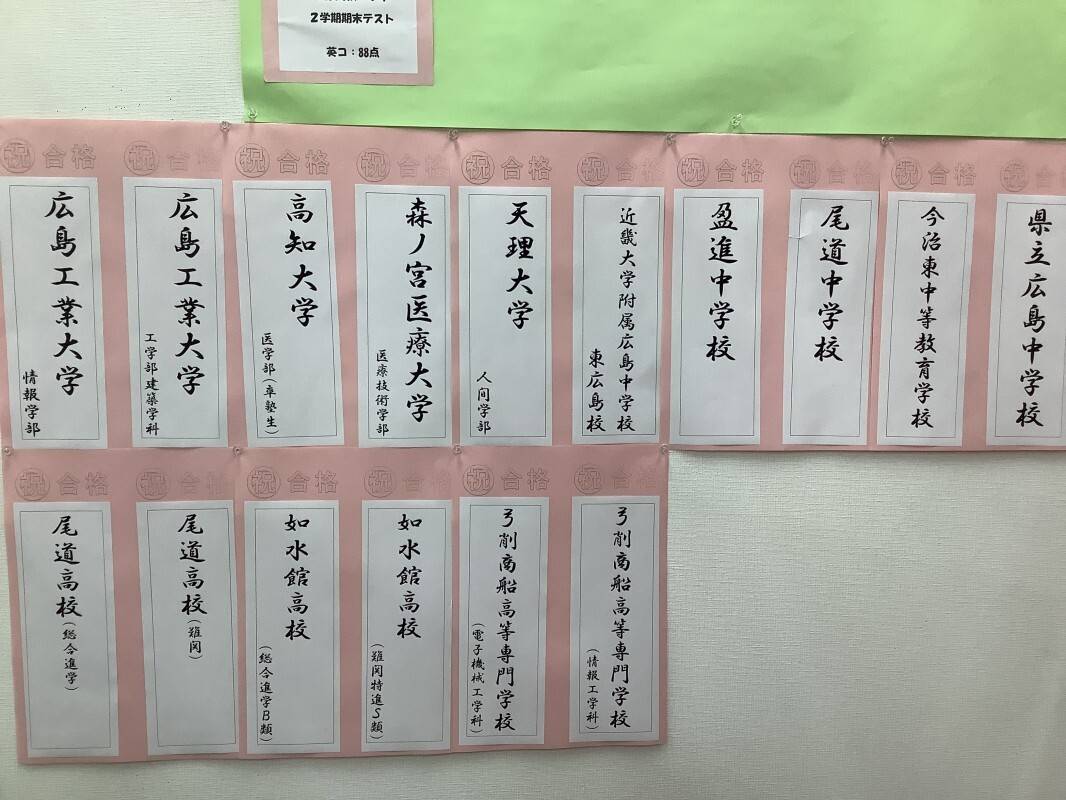 2学期期末テスト
英コ：88点
祝 合格
県立広島中学校
祝 合格
今治東中等教育学校
祝 合格
尾道中学校
祝 合格
盈進中学校
祝 合格
近畿大学附属広島中学校
東広島校
祝 合格
天理大学
人间学部
祝 合格
森ノ宮医療大学
医療技術学部
祝 合格
高知大学
医学部（卒塾生）
祝 合格
広島工業大学
工学部建築学科
祝 合格
広島工業大学
情報学部
祝 合格
弓削商船高等専門学校
（情報工学科）
祝 合格
弓削商船高等専門学校
（電子機械工学科）
祝 合格
如水館高校
（難関特進S類）
祝 合格
如水館高校
（総合進学B類）
祝 合格
尾道高校
（難関）
祝 合格
尾道高校
（総合進学）